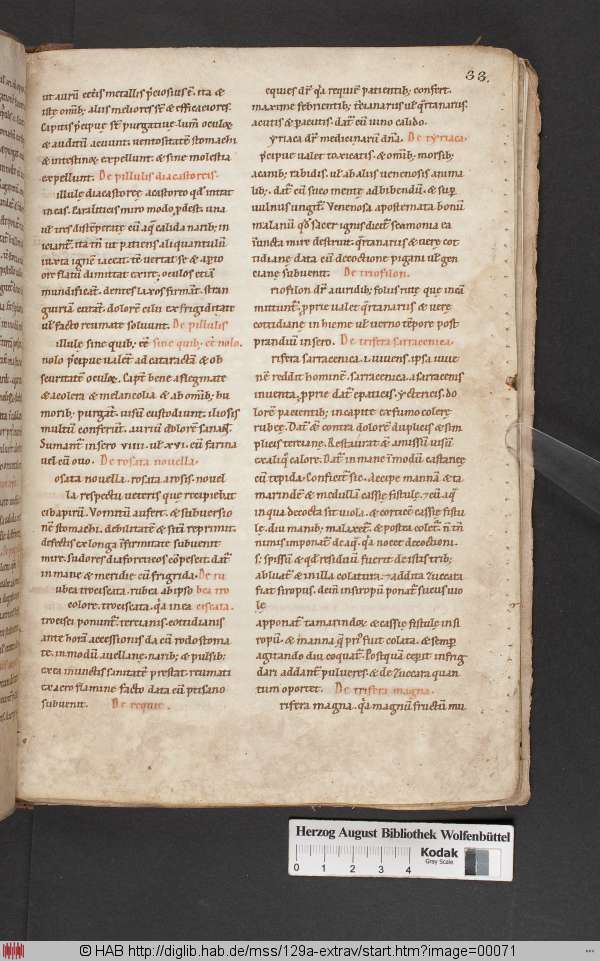 33.
ut aurū cet̄is metallis p̄ciosius ē. ita &
iste om̄ib; aliis meliores st̄ & efficaciores.
Capitis p̄cipue st̄ purgatiue. lum̄ oculoꝝ
& auditū acuunt. uentositatē stomachi
& intestinoꝝ expellunt. & sine molestia
expellunt. De pillulis diacastoreis.
illule diacastoree. acastoreo qd̄ intat
in eas. Paraliticis miro modo p̄dest. una
ul̄ tres distēperate cū aqͣ calida narib; in
iciant̄. ita tn̄ ut patiens aliquantulū
iuxta ignē iaceat.
ore flatū dimittat exire. oculos etiā
mundificant̄. dentes laxos firmant̄. stran
guiriam curant̄. dolorē
ul̄ facto reumate soluunt. De pillulis
illule sine quib; ēē sine quib; ēē nolo.
nolo p̄cipue ualent ad cataractā & ob
scuritatē oculoꝝ. Caput bene a flegmate
& a colera & melancolia & ab om̄ib; hu
morib; purgant̄. uisū custodiunt. iliosis
multū conferunt. auriū dolorē sanant̄.
Sumant̄ in sero VIIII. ul̄ XVI. cū farina
uel cū ouo. De rosata nouella.
osata nouella. rosata a rosis. nouel
la respectu ueteris que recipiebat
Vomitū aufert. & subuersio
nē stomachi. debilitatē & sitī reprimit.
defectis ex longa īfirmitate subuenit
mire. sudores diaforeticos cōpescit. dat̄
in mane & meridie cū frigida. De ru
ubea trociscata. rubea ab ipso bea tro
colore. trociscata. qͣ in ea ciscata.
trocisci ponunt̄. tertianis. cotidianis
ante horā accessionis da cū rodostoma
te. in modū auellane. narib; & pulsib;
inunctis sanitatē prestat. reumati
ex acro flamine facto data cū ptisano
subuenit. De requie.
equies dr̄. qͣ requiē patientib; confert.
maxime febrientib; tercianis ul̄ qͣrtanis.
acutis & pacutis. dat̄ cū uino calido.
yriaca dr̄ medicinarū dn̄a. De tyriaca.
p̄cipue ualet toxicatis & om̄ib; morsib;
a canib; rabidis. ul̄ ab aliis uenenosis anima
lib;. dat̄ cū suco mente ad bibendū. & sup
uulnus ungit̄. Venenosa apostemata bonū
malanū qd̄ sacer ignis dicit̄
mire destruit. qͣrtanis & uere co
tidiane data cū decoctione pigani ul̄ gen
ciane subuenit. De triofilon.
riofilon dr̄. a uiridib; foliis rute que in eā
mittunt̄. p̄prie ualet qͣrtanis & uere
cotidiane in hieme ul̄ uerno tēpore post
prandiū in sero. De trifera sarracenica.
rifera sarracenica. i. iuuenis. ipsa iuue
nē reddit hominē. sarracenica. a sarracenis
inuenta. p̄prie dat̄ epaticis. yctericis. do
lorē pacientib; in capite ex fumo colere
rubee. Dat̄ & contra dolorē duplicis & sim
plicis terciane. Restaurat & amissū uisū
ex aliqͦ calore. Dat̄ in mane ī modū castanee
cū tepida. Conficit̄ sic. Accipe mannā & ta
marindē & medullam cassie fistule. & cū aqͣ
in qua decocta sit uiola. & corticē cassie fistu
le. diu manib; malaxet̄. & postea colet̄. n̄ tn̄
nimis imponat̄ de aqͣ. qͣ nocet decoctioni
s; spissū & qd̄ residuū fuerit de istis trib;
abluat̄ & in illa colatura. & addita zuccara
fiat siropus. dein̄ in siropū ponat̄ sucus uio
lę
apponat̄ tamarindoꝝ & cassie fistule in si
ropū. & manna qͥ pri᷒ fuit colata. & semp
agitando diu coquat̄. Postquā cepit infrig
dari addant̄ pulueres. & de zuccara quan
tum oportet. De trifera magna.
rifera magna. qͣ magnū fructū mu
Herzog August Bibliothek Wolfenbüttel
0 1 2 3 4
Kodak
Gray Scale
© HAB http://diglib.hab.de/mss/129a-extrav/start.htm?image=00071